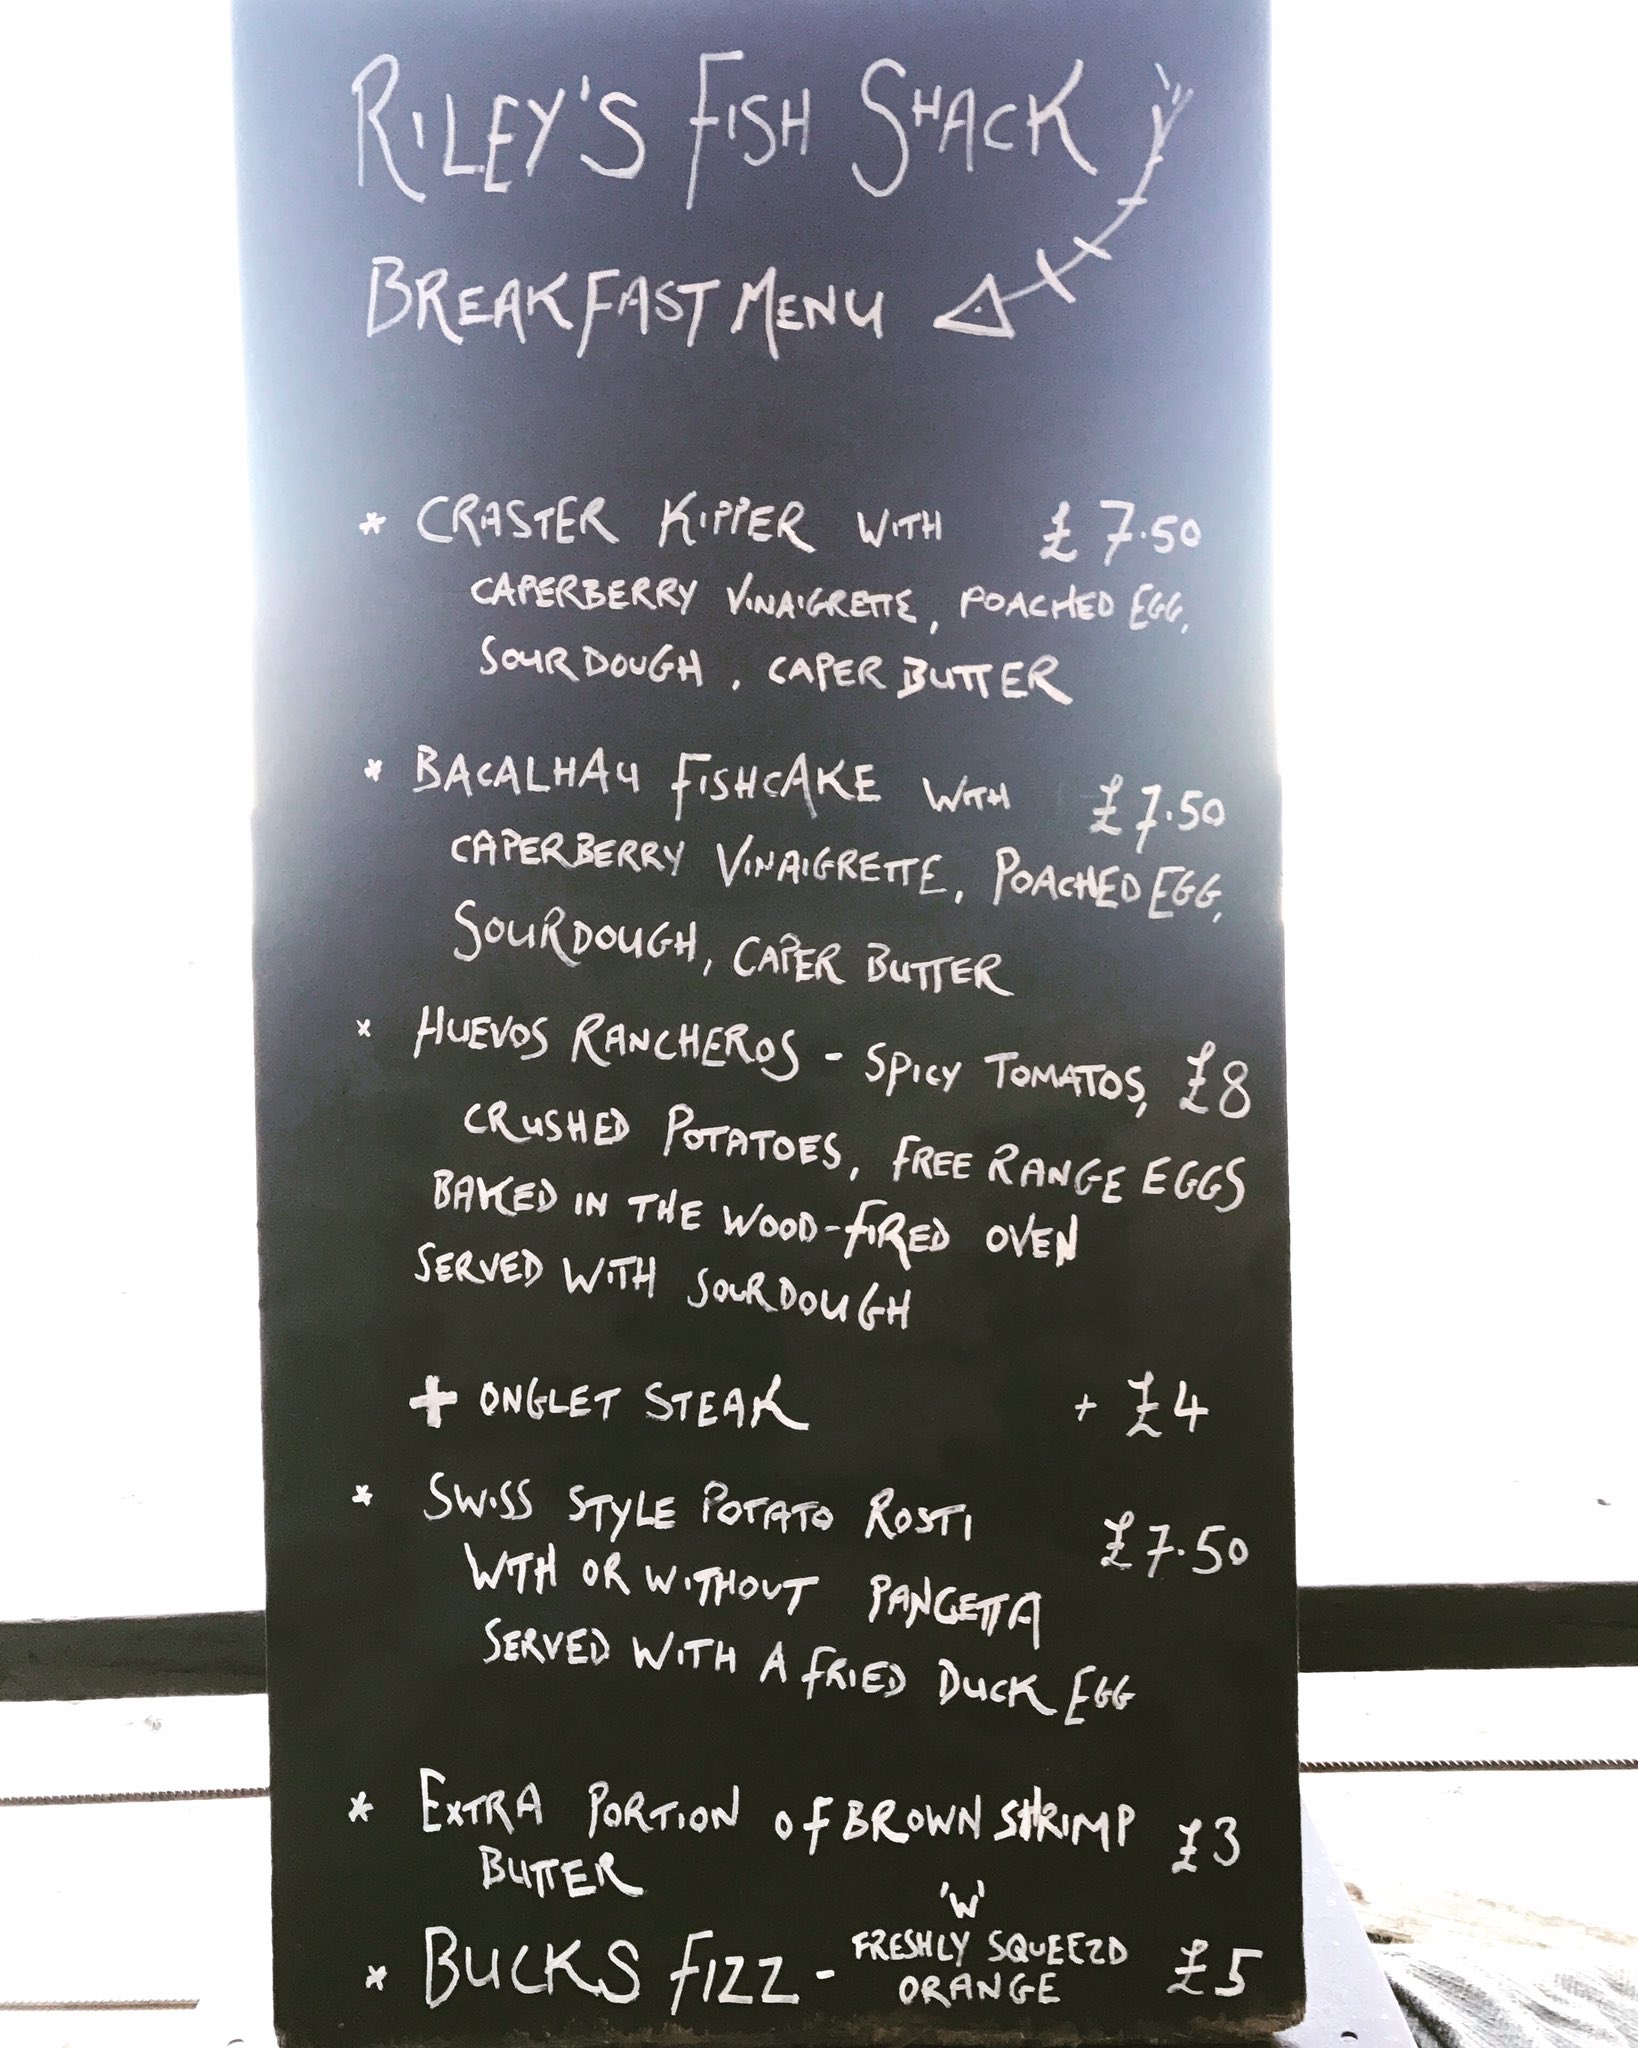 RILEY'S FISH SHACK
BREAKFAST MENU
* CRASTER KIPPER WITH £7.50
CAPERBERRY VINAIGRETTE, POACHED EGG,
SOURDOUGH, CAPER BUTTER
* BACALHAU FISHCAKE WITH £7.50
CAPERBERRY VINAIGRETTE, POACHED EGG,
SOURDOUGH, CAPER BUTTER
* HUEVOS RANCHEROS - SPICY TOMATOS, £8
CRUSHED POTATOES, FREE RANGE EGGS
BAKED IN THE WOOD-FIRED OVEN
SERVED WITH SOURDOUGH
+ ONGLET STEAK + £4
* SWISS STYLE POTATO ROSTI £7.50
WITH OR WITHOUT PANCETTA
SERVED WITH A FRIED DUCK EGG
* EXTRA PORTION OF BROWN SHRIMP £3
BUTTER
'W'
* BUCKS FIZZ - FRESHLY SQUEEZD £5
ORANGE